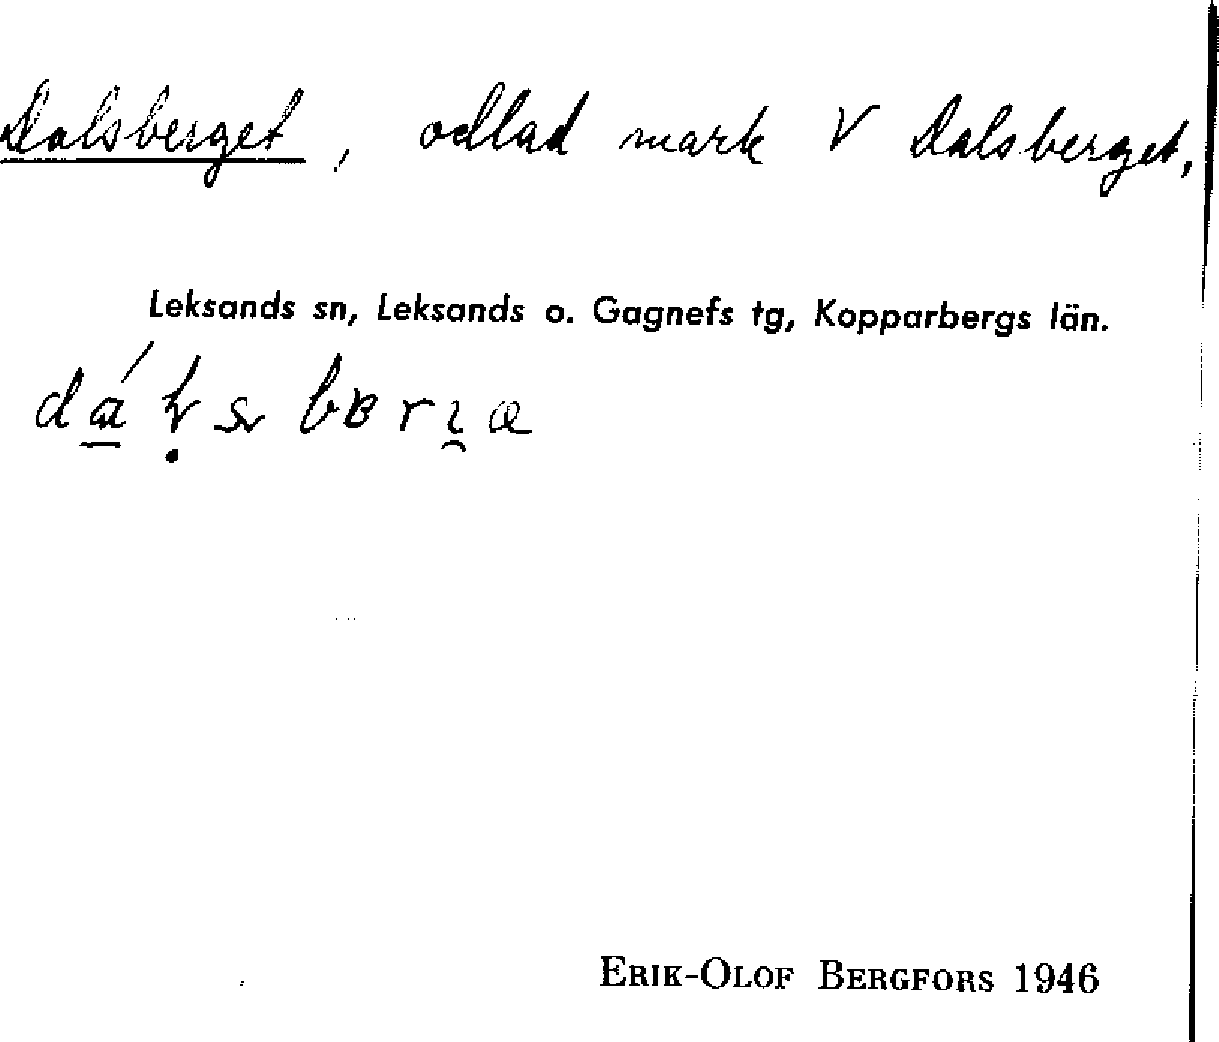 Dalsberget, odlad mark V Dalsberget,
Leksands sn, Leksands o. Gagnefs tg, Kopparbergs län.
ERIK-OLOF BERGFORS 1946